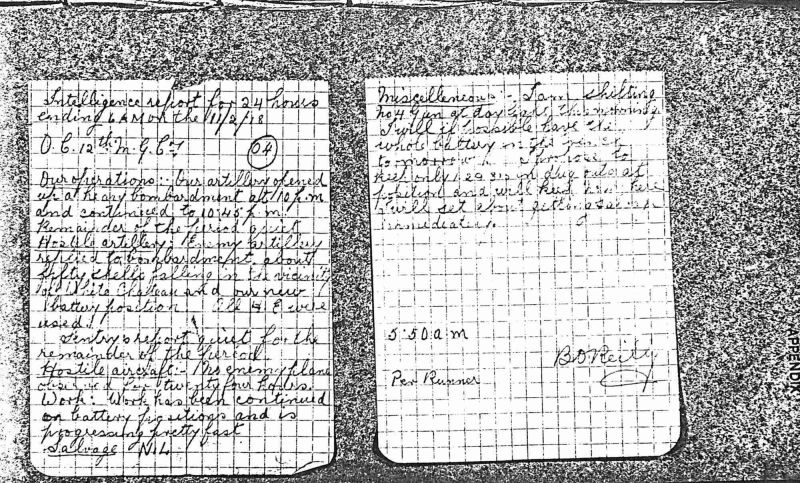 Intelligence report for 24 hours
ending 6 AM on the 11/2/18
O.C. 12th M.G. Coy
04
Our operations:- Our artillery opened
up a heavy bombardment at 10 p.m
and continued to 10.45 p.m.
Remainder of the period quiet
Hostile artillery: Enemy artillery
replied to bombardment about
fifty shells falling in the vicinity
of White Chateau and our new
battery position. All H.E were
used.
Sentrys report quiet for the
remainder of the period.
Hostile aircraft:- No enemy plane
observed for twenty four hours.
Work: Work has been continued
on battery positions and is
progressing pretty fast
Salvage NIL
Miscellaneous:- I am shifting
No 4 Gun at day this morning
I will if possible have the
whole battery in
tomorrow. I to
keep only in dug outs at
position and will keep here
I will set about getting
immediately.
5.50 a m
B O'Reily
Per Runner
APPENDIX